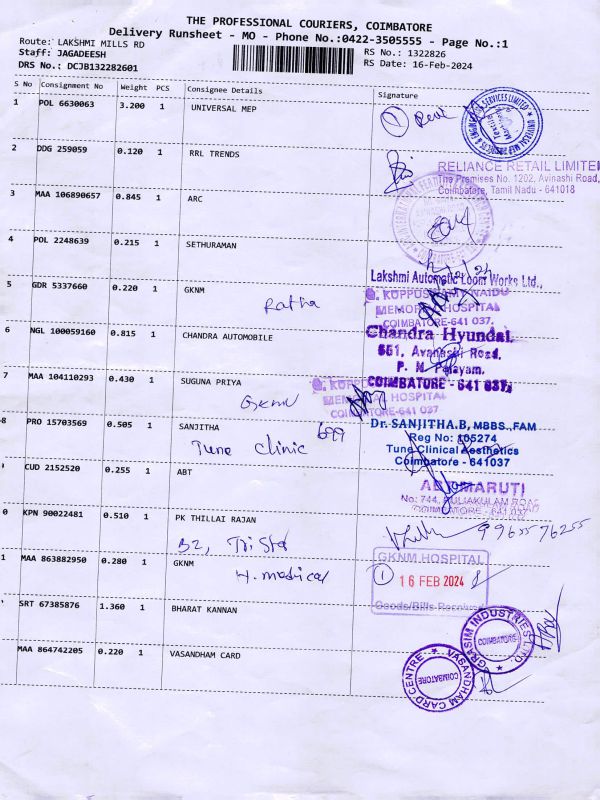 THE PROFESSIONAL COURIERS, COIMBATORE
Delivery Runsheet - MO - Phone No.:0422-3505555 - Page No.:1
Route: LAKSHMI MILLS RD
RS No.: 1322826
Staff: JAGADEESH
RS Date: 16-Feb-2024
DRS No.: DCJB132282601
S No Consignment No Weight PCS Consignee Details Signature
1 POL 6630063 3.200 1 UNIVERSAL MEP
1
2 DDG 259059 0.120 1 RRL TRENDS
RELIANCE RETAIL LIMITE
The Premises No. 1202, Avinashi Road,
Coimbatore, Tamil Nadu - 641018
3 MAA 106890657 0.845 1 ARC
4 POL 2248639 0.215 1 SETHURAMAN
Lakshmi Automatic Loom Works Ltd.,
5 GDR 5337660 0.220 1 GKNM
Ratha
G. KUPPUSWAMY NAIDU
MEMORIAL HOSPITAL
COIMBATORE-641 037.
6 NGL 100059160 0.815 1 CHANDRA AUTOMOBILE
Chandra Hyundai
661, Avanashi Road,
P. N. Palayam,
COIMBATORE - 641 037.
7 MAA 104110293 0.430 1 SUGUNA PRIYA
GKNM
HOSPITAL
COIMBATORE-641 037
8 PRO 15703569 0.505 1 SANJITHA
Tune Clinic 699
Dr. SANJITHA.B, MBBS.,FAM
Reg No: 165274
Tune Clinical Aesthetics
Coimbatore - 641037
CUD 2152520 0.255 1 ABT
MARUTI
No: 744, PULIAKULAM ROAD
COIMBATORE - 641 045.
0 KPN 90022481 0.510 1 PK THILLAI RAJAN
B2, Tristar
1 MAA 863882950 0.280 1 GKNM
H. medical
GKNM HOSPITAL
1 16 FEB 2024
Goods/Bills Received
SRT 67385876 1.360 1 BHARAT KANNAN
GRASIM INDUSTRIES LTD
COIMBATORE
MAA 864742205 0.220 1 VASANDHAM CARD
VASANDHAM CARD CENTRE
COIMBATORE